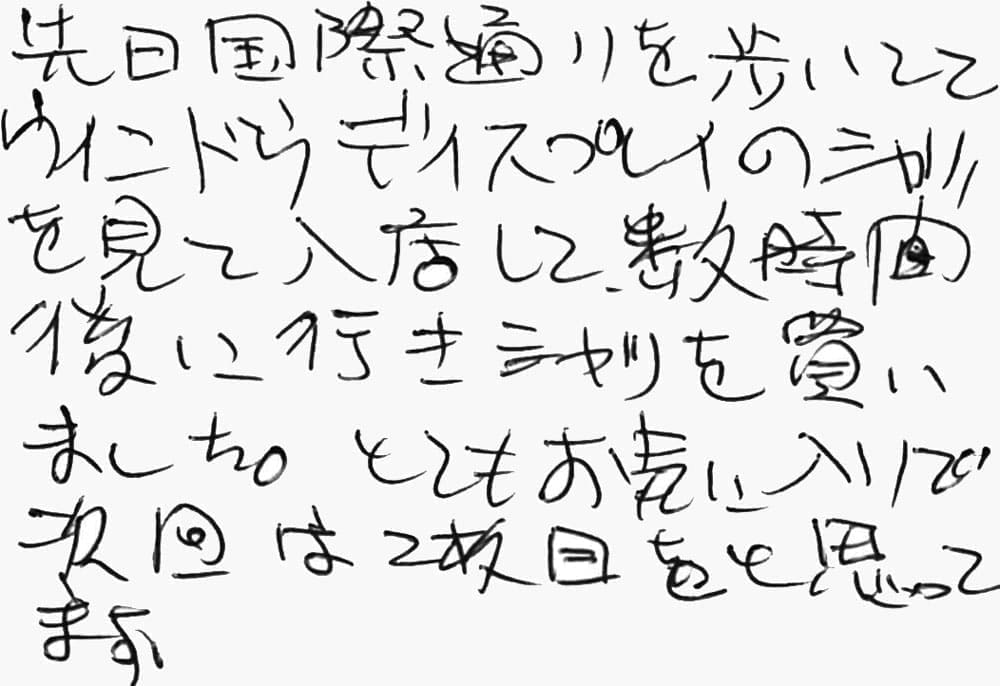 先日国際通りを歩いてて
ウインドウディスプレイのシャツ
を見て入店して、数時間
後に行きシャツを買い
ました。とてもお気に入りで
次回は2枚目をと思って
ます